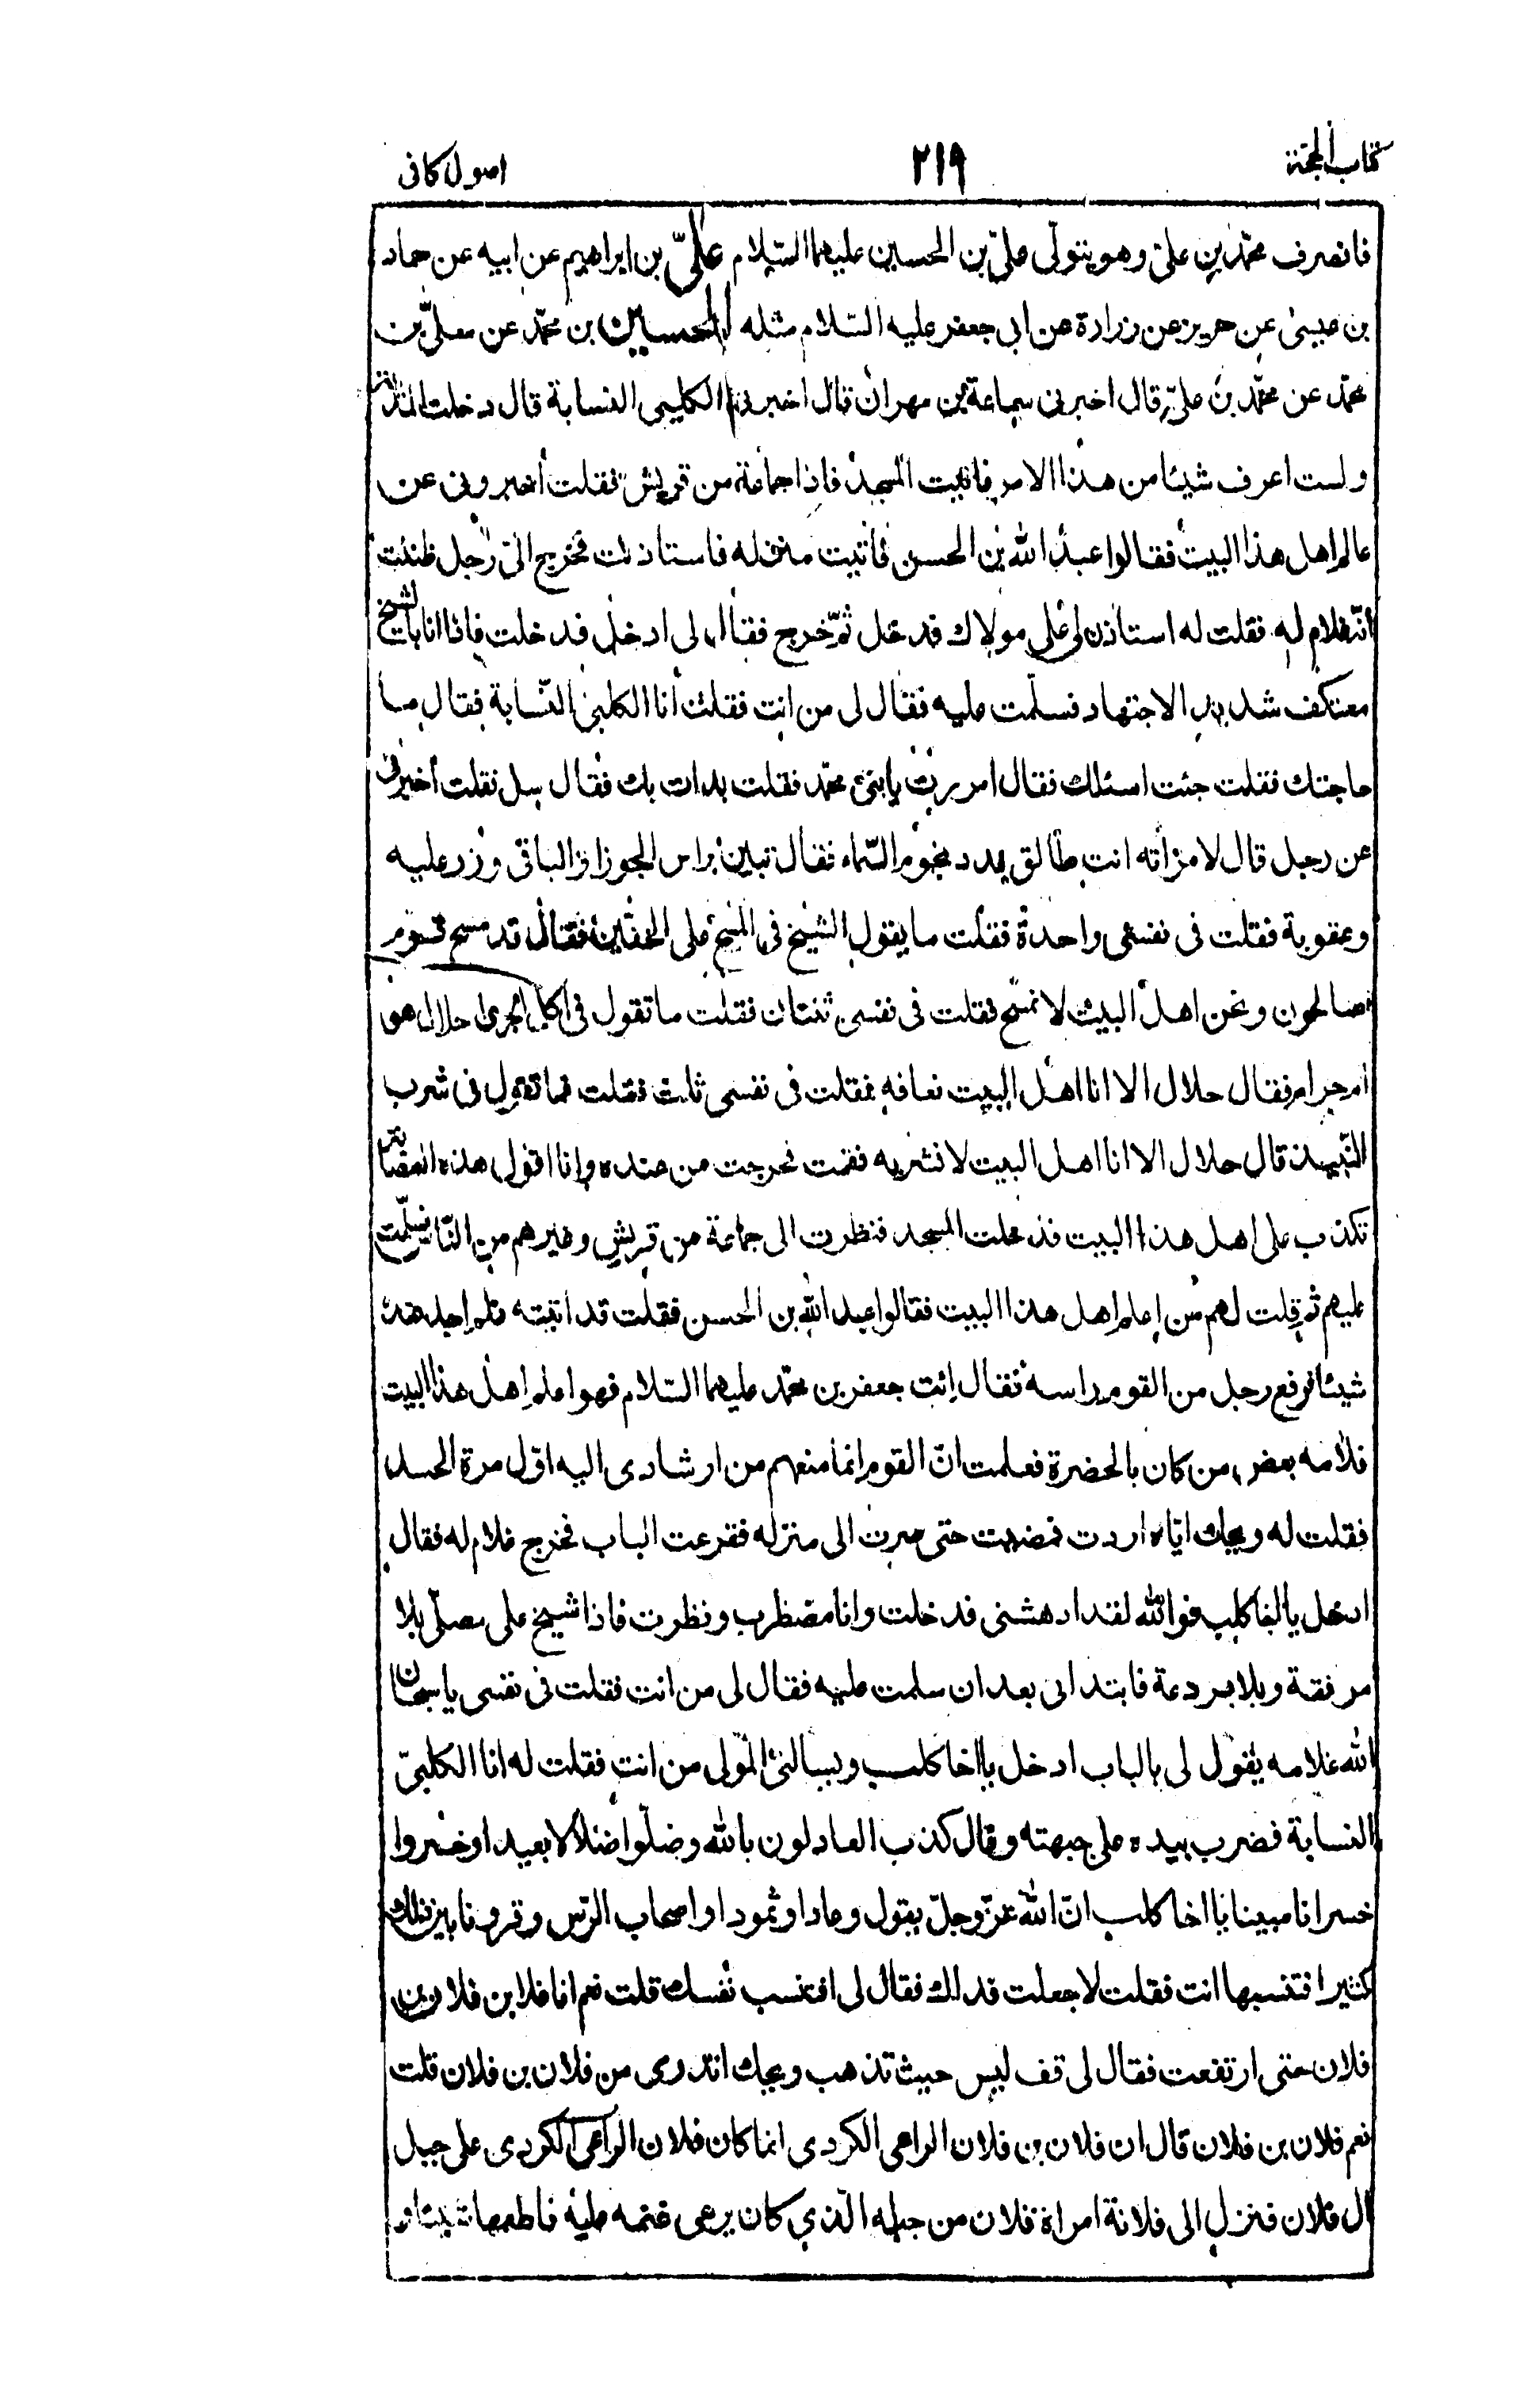 كتاب الحجة ٢١٩ اصول كافى
فانصرف محمّد بن على وهو يتولّى علىّ بن الحسين عليهما السّلام علىّ بن ابراهيم عن ابيه عن حماد
بن عيسىٰ عن حريز عن زرارة عن ابى جعفر عليه السّلام مثله الحسين بن محمّد عن معلىّ بن
محمّد عن محمّد بن علىّ قال اخبرنى سماعة بن مهران قال اخبرنى الكلبى النسابة قال دخلت المدينة
ولست اعرف شيئا من هذا الامر فاتيت المسجد فاذا جماعة من قريش فقلت أخبرونى عن
عالم اهل هذا البيت فقالوا عبد الله بن الحسن فأتيت منزله فاستاذنت فخرج الىّ رجل ظننت
انّه غلام له فقلت له استاذن لى على مولاك فدخل ثمّ خرج فقال لى ادخل فدخلت فاذا انا بالشيخ
معتكف شديد الاجتهاد فسلّمت عليه فقال لى من انت فقلت أنا الكلبىّ النّسابة فقال ما
حاجتك فقلت جئت اسئلك فقال امررت بابنى محمّد فقلت بدات بك فقال سل فقلت أخبرنى
عن رجل قال لامرأته انت طالق عدد نجوم السّماء فقال تبين براس الجوزا والباقى وزر عليه
وعقوبة فقلت فى نفسى واحدة فقلت ما يقول الشيخ فى المسح على الخفّين فقال قد مسح قوم
صالحون ونحن اهل البيت لا نمسح فقلت فى نفسى ثنتان فقلت ما تقول فى اكل الجرى احلال هو
ام حرام فقال حلال الا انا اهل البيت نعافه فقلت فى نفسى ثلث فقلت فما تقول فى شرب
النّبيذ قال حلال الا انا اهل البيت لا نشربه فقمت فخرجت من عنده وانا اقول هذه العصابة
تكذب على اهل هذا البيت فدخلت المسجد فنظرت الى جماعة من قريش وغيرهم من النّاس فسلّمت
عليهم ثم قلت لهم من اعلم اهل هذا البيت فقالوا عبد الله بن الحسن فقلت قد أتيته فلم اجد عنده
شيئا فرفع رجل من القوم راسه فقال إئت جعفر بن محمّد عليهما السّلام فهوا علم اهل هذا البيت
فلامه بعض من كان بالحضرة فعلمت انّ القوم انما منعهم من ارشادى اليه اوّل مرة الحسد
فقلت له ويحك ايّاه اردت فمضيت حتى صرت الى منزله فقرعت الباب فخرج غلام له فقال
ادخل يا اخا كلب فوالله لقد ادهشنى فدخلت وانا مضطرب ونظرت فاذا شيخ على مصلّى بلا
مرفقة وبلا بردعة فابتدانى بعد ان سلمت عليه فقال لى من انت فقلت فى نفسى يا سبحان
الله غلامه يقول لى بالباب ادخل يا اخا كلب ويسالنى المولى من انت فقلت له انا الكلبىّ
النسابة فضرب بيده على جبهته وقال كذب العادلون بالله وضلّوا ضلالا بعيدا وخسروا
خسرانا مبينا يا اخا كلب انّ الله عزّ وجلّ يقول وعادا وثمودا واصحاب الرّس وقرونا بين ذلك
كثيرا فتنسبها انت فقلت لا جعلت فداك فقال لى افتنسب نفسك قلت نعم انا فلان بن فلان بن
فلان حتى ارتفعت فقال لى قف ليس حيث تذهب ويحك اتدرى من فلان بن فلان قلت
نعم فلان بن فلان قال ان فلان بن فلان الراعى الكردى انما كان فلان الراعى الكردى على جبل
ال فلان فنزل الى فلانة امراة فلان من جبله الّذي كان يرعى غنمه عليه فاطعمها شيئا و